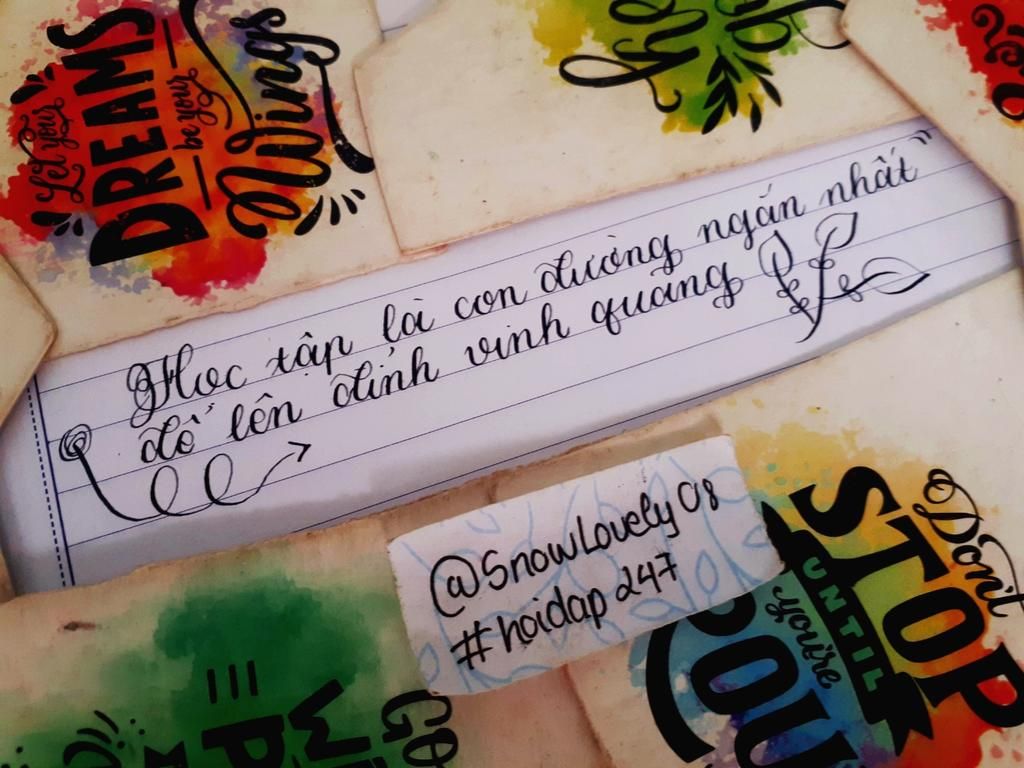 Let your
DREAMS
be your
Wings
Học tập là con đường ngắn nhất"
để lên đỉnh vinh quang
@SnowLovely08
#hoidap247
Don't
STOP
UNTIL
you're
GO